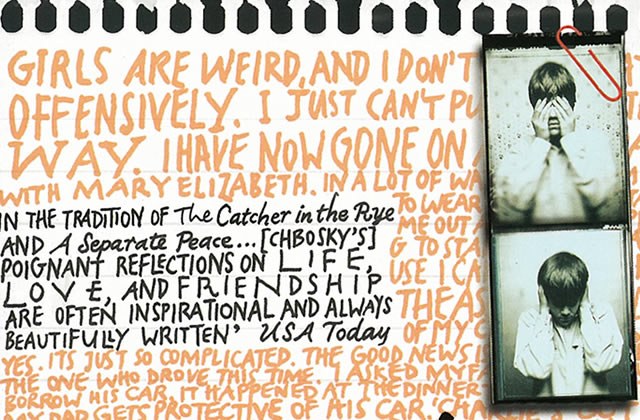 GIRLS ARE WEIRD, AND I DON'T
OFFENSIVELY. I JUST CAN'T PU
WAY. I HAVE NOW GONE ON
WITH MARY ELIZABETH. IN A LOT OF WA
IN THE TRADITION OF The Catcher in the Rye
AND A Separate Peace...[CHBOSKY'S]
POIGNANT REFLECTIONS ON LIFE,
LOVE, AND FRIENDSHIP
ARE OFTEN INSPIRATIONAL AND ALWAYS
BEAUTIFULLY WRITTEN' USA Today
TO WEAR
ME OUT
G TO STA
USE I CA
THE AS
OF MY C
YES. ITS JUST SO COMPLICATED. THE GOOD NEWS IS
THE ONE WHO DROVE THIS TIME. I ASKED MY FA
BORROW HIS CAR. IT HAPPENED AT THE DINNER
MY DAD GETS PROTECTIVE OF HIS CAR.